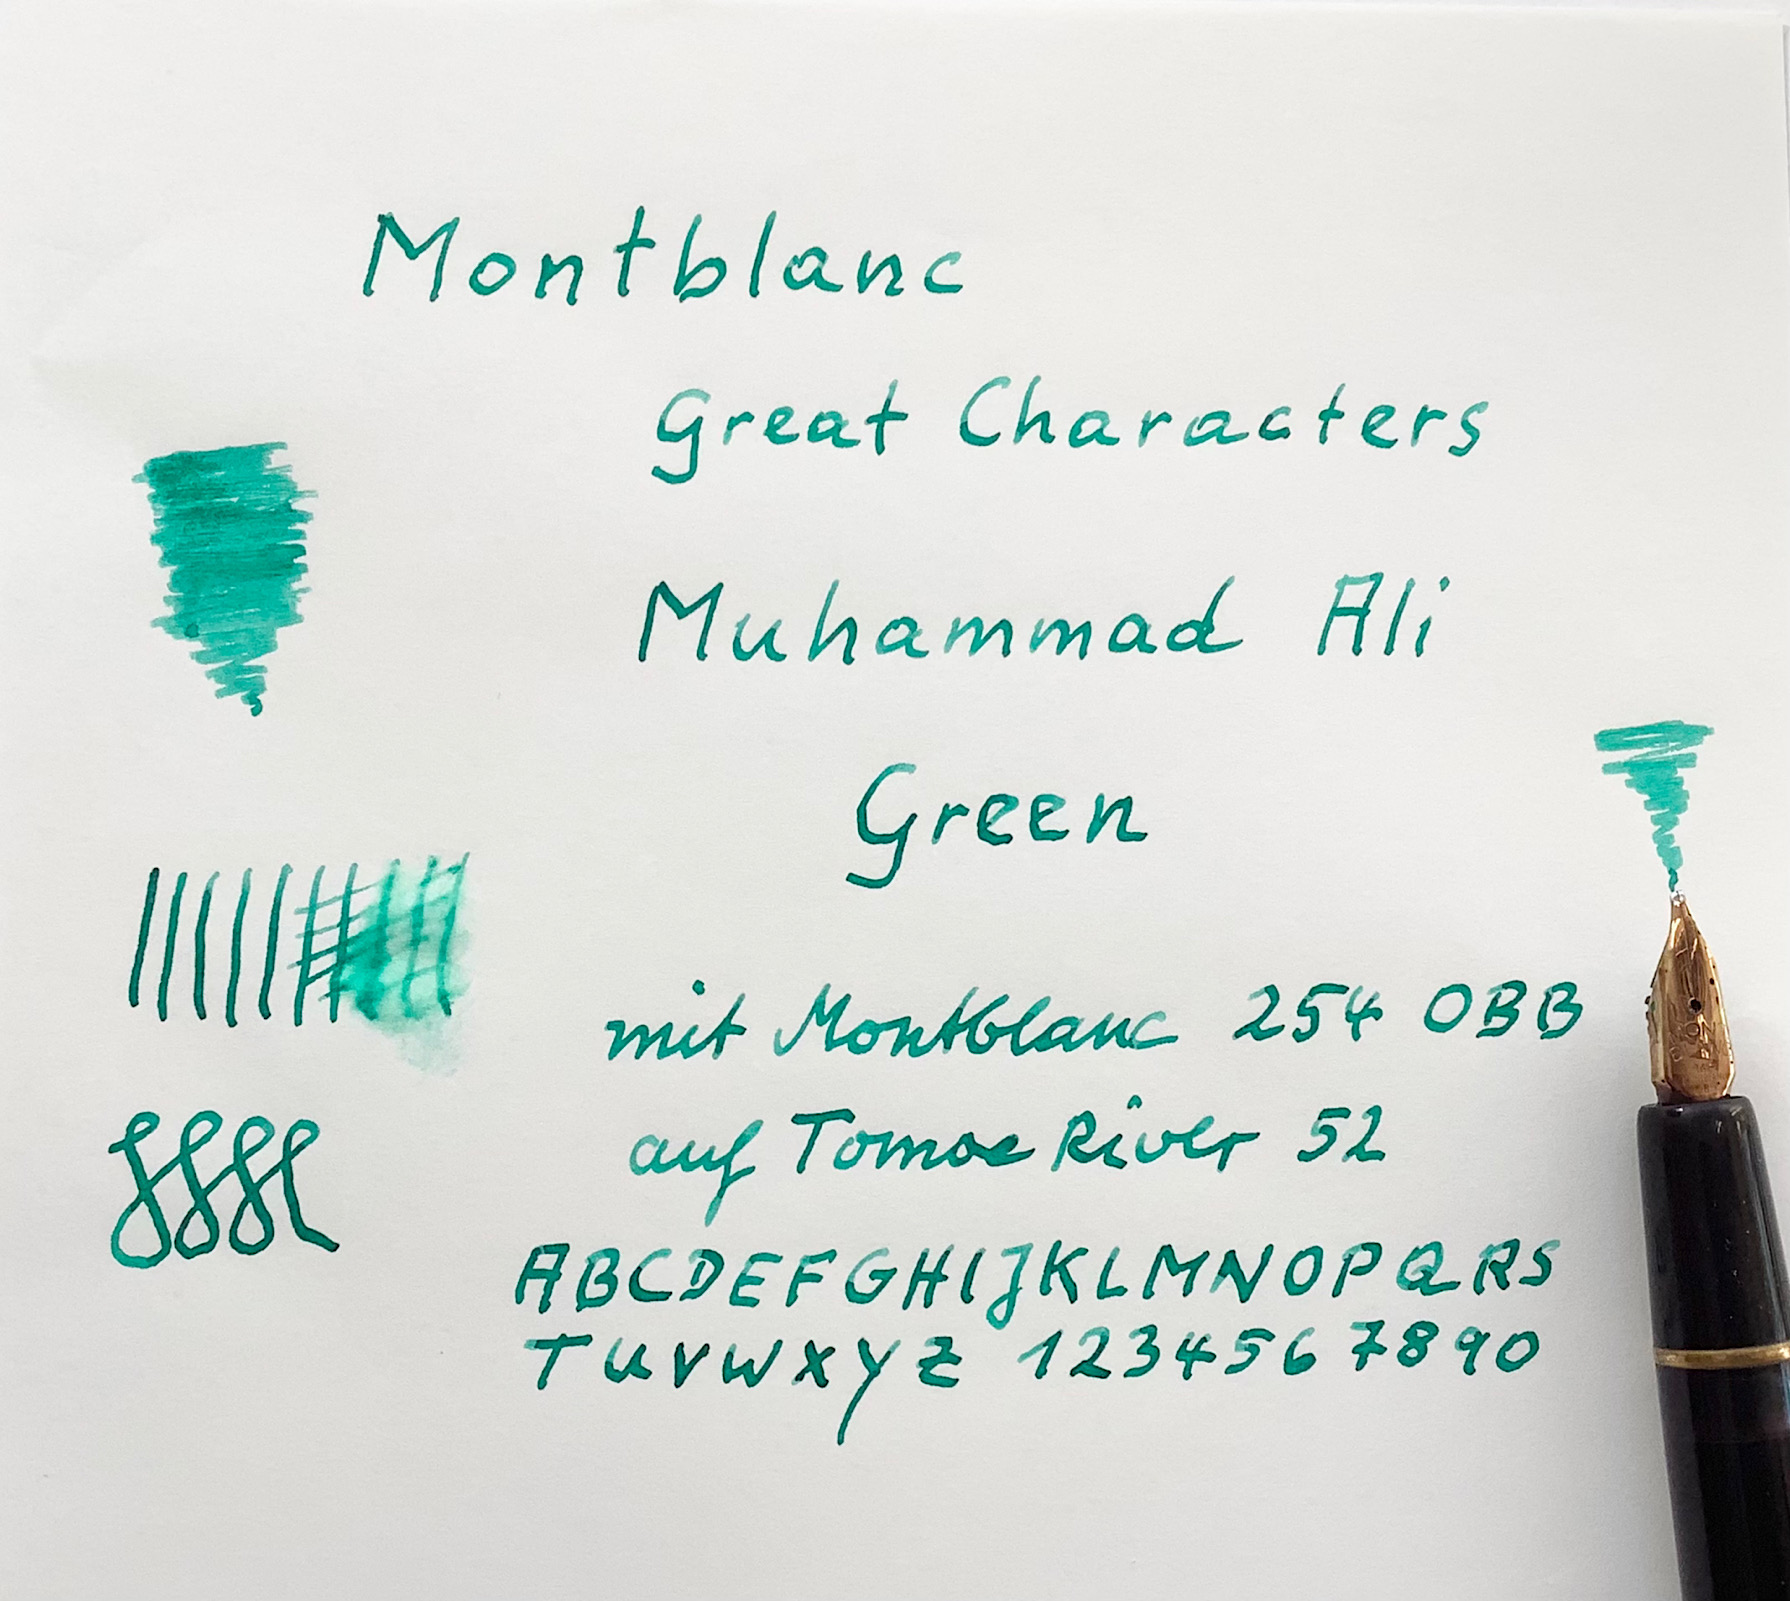 Montblanc
Great Characters
Muhammad Ali
Green
mit Montblanc 254 OBB
auf Tomoe River 52
ABCDEFGHIJKLMNOPQRS
TUVWXYZ 1234567890